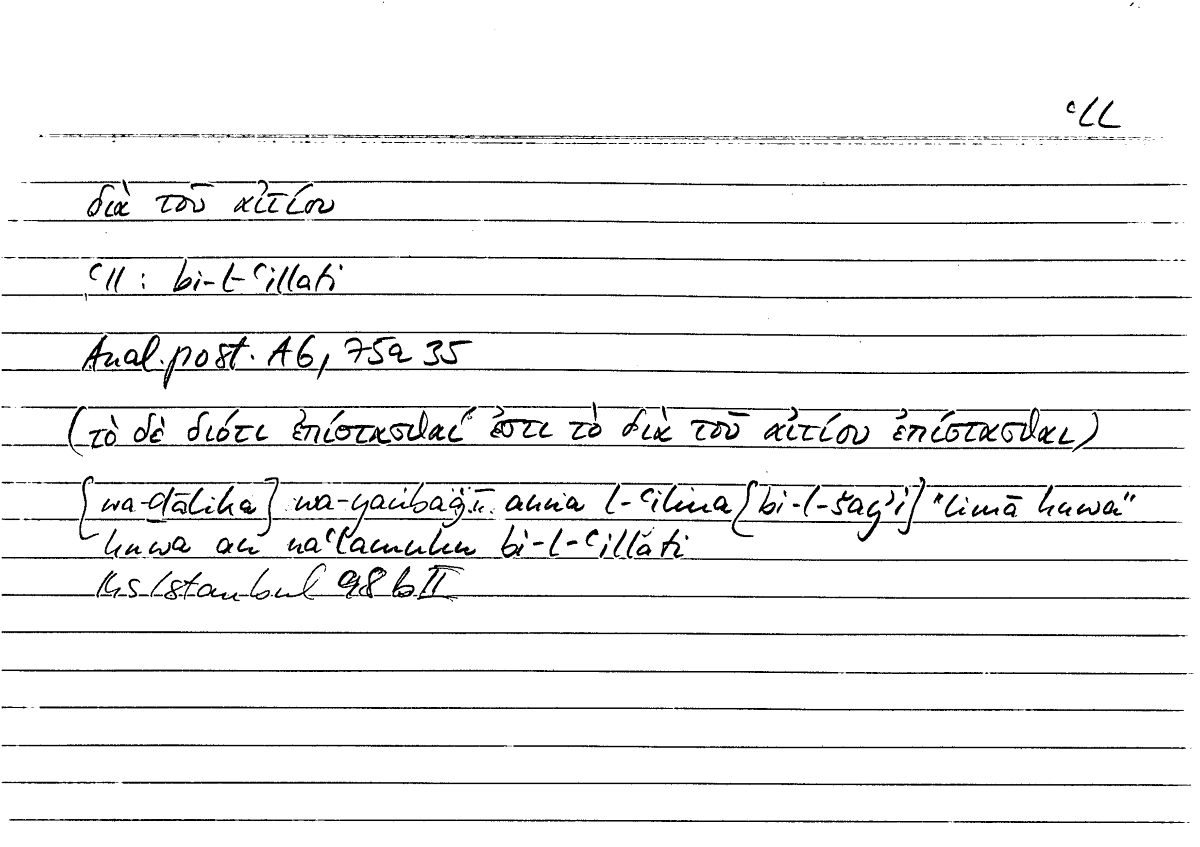 ᶜLL
διὰ τοῦ αἰτίου
ᶜll : bi-l-ᶜillati
Anal. post. A6, 75a 35
(τὸ δὲ διότι ἐπίστασθαί ἐστι τὸ διὰ τοῦ αἰτίου ἐπίστασθαι)
[wa-ḏālika] wa-yanbaġī anna l-ᶜilma [bi-l-šayʾi] "limā huwa"
huwa an naᶜlamuhu bi-l-ᶜillati
Hs Istanbul 98 b II